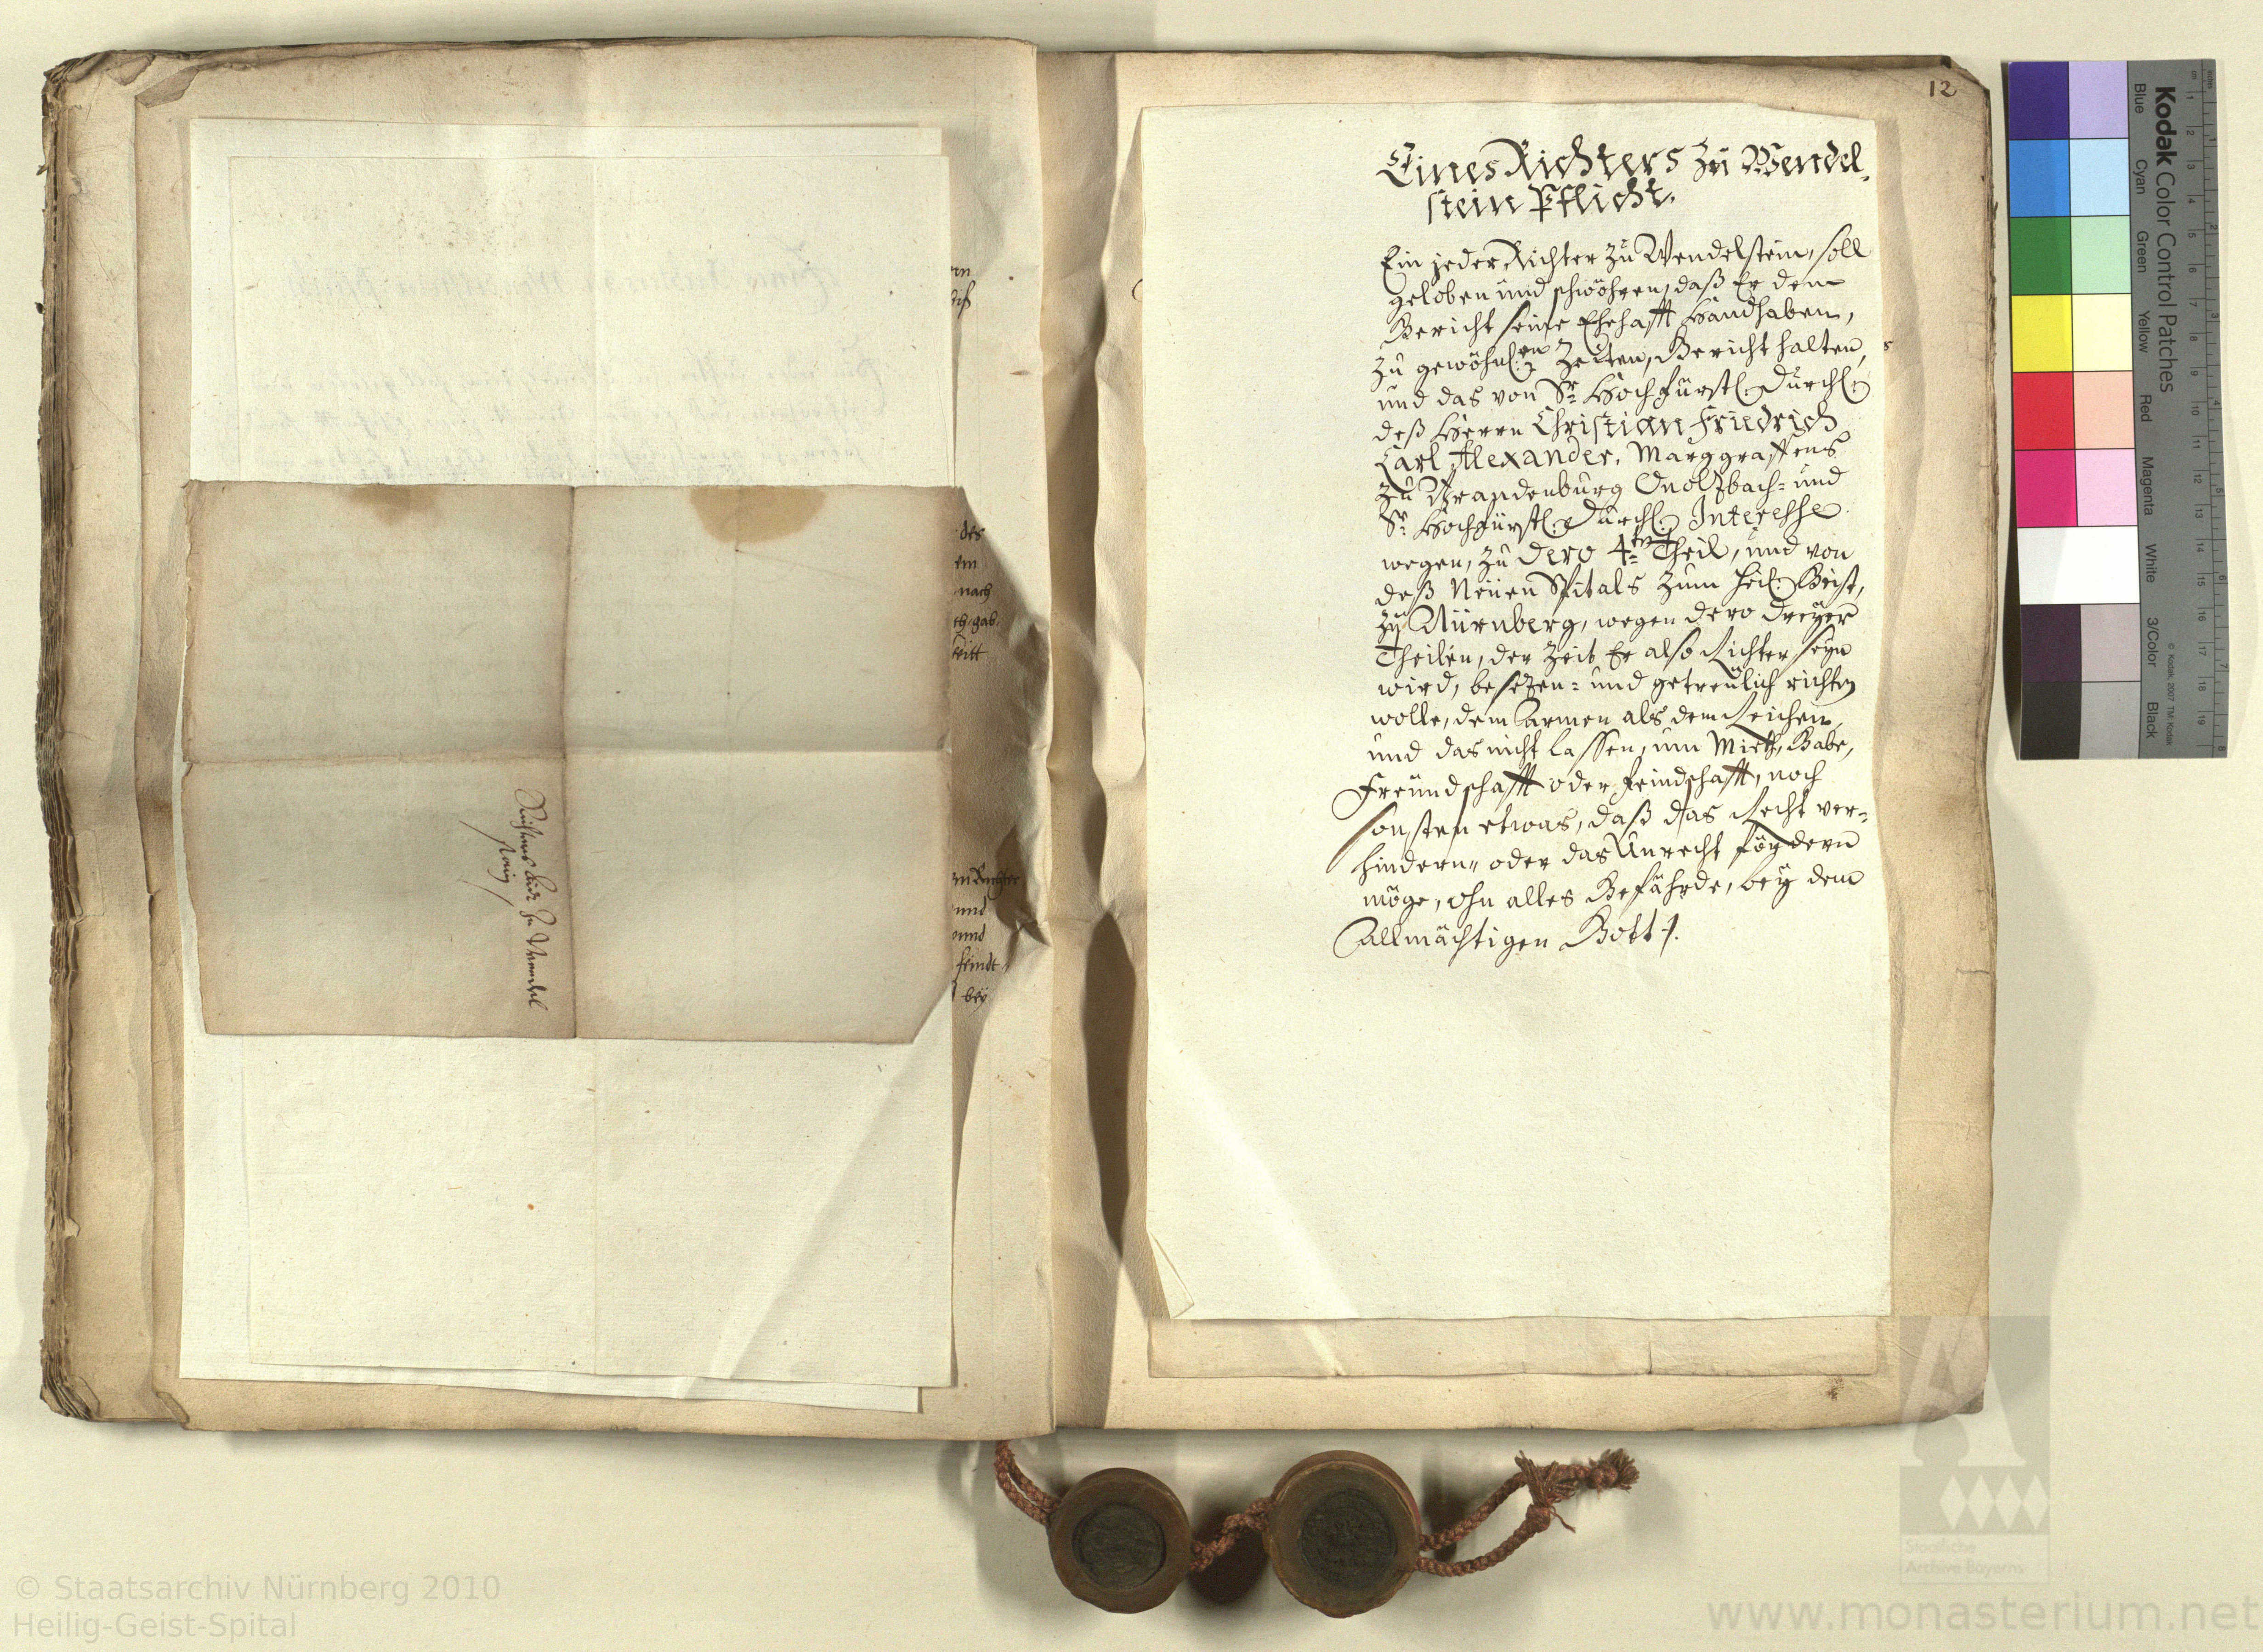 12
Eines Richters zu Wendel-
stein Pflicht.
Ein jeder Richter zu Wendelstein, soll
geloben und schwöhren, daß Er dem
Gericht seine Ehehafft Handhaben,
zu gewöhnl:en Zeiten, Gericht halten,
und das von Sr Hochfürstl: Durchl:
deß Herrn Christian Friedrich
Carl Alexander, Marggraffens
zu Brandenburg Onoltzbach= und
Sr Hochfürstl: Durchl: Interesse
wegen, zu dero 4ten Theil, und von
deß Neuen Spitals zum Heil: Geist,
zu Nürnberg, wegen dero dreyen
Theilen, der Zeit Er also Richter seyn
wird, besezen= und getreulich richten
wolle, dem armen als dem Reichen,
und das nicht lassen, um Mieth, Gabe,
Freundschafft oder Feindschafft, noch
sonsten etwas, daß das Recht ver=
hindern= oder das Unrecht fördern
möge, ohn alles Gefährde, bey dem
allmächtigen Gott.
Richters Aidt zu Wendel
stein
des
em
nach
gab.
mn Richter
und
unnd
feindt
bey
Kodak Color Control Patches
Blue Cyan Green Yellow Red Magenta White 3/Color Black
© Kodak, 2007 TM: Kodak
Staatliche
Archive Bayerns
© Staatsarchiv Nürnberg 2010
Heilig-Geist-Spital
www.monasterium.net